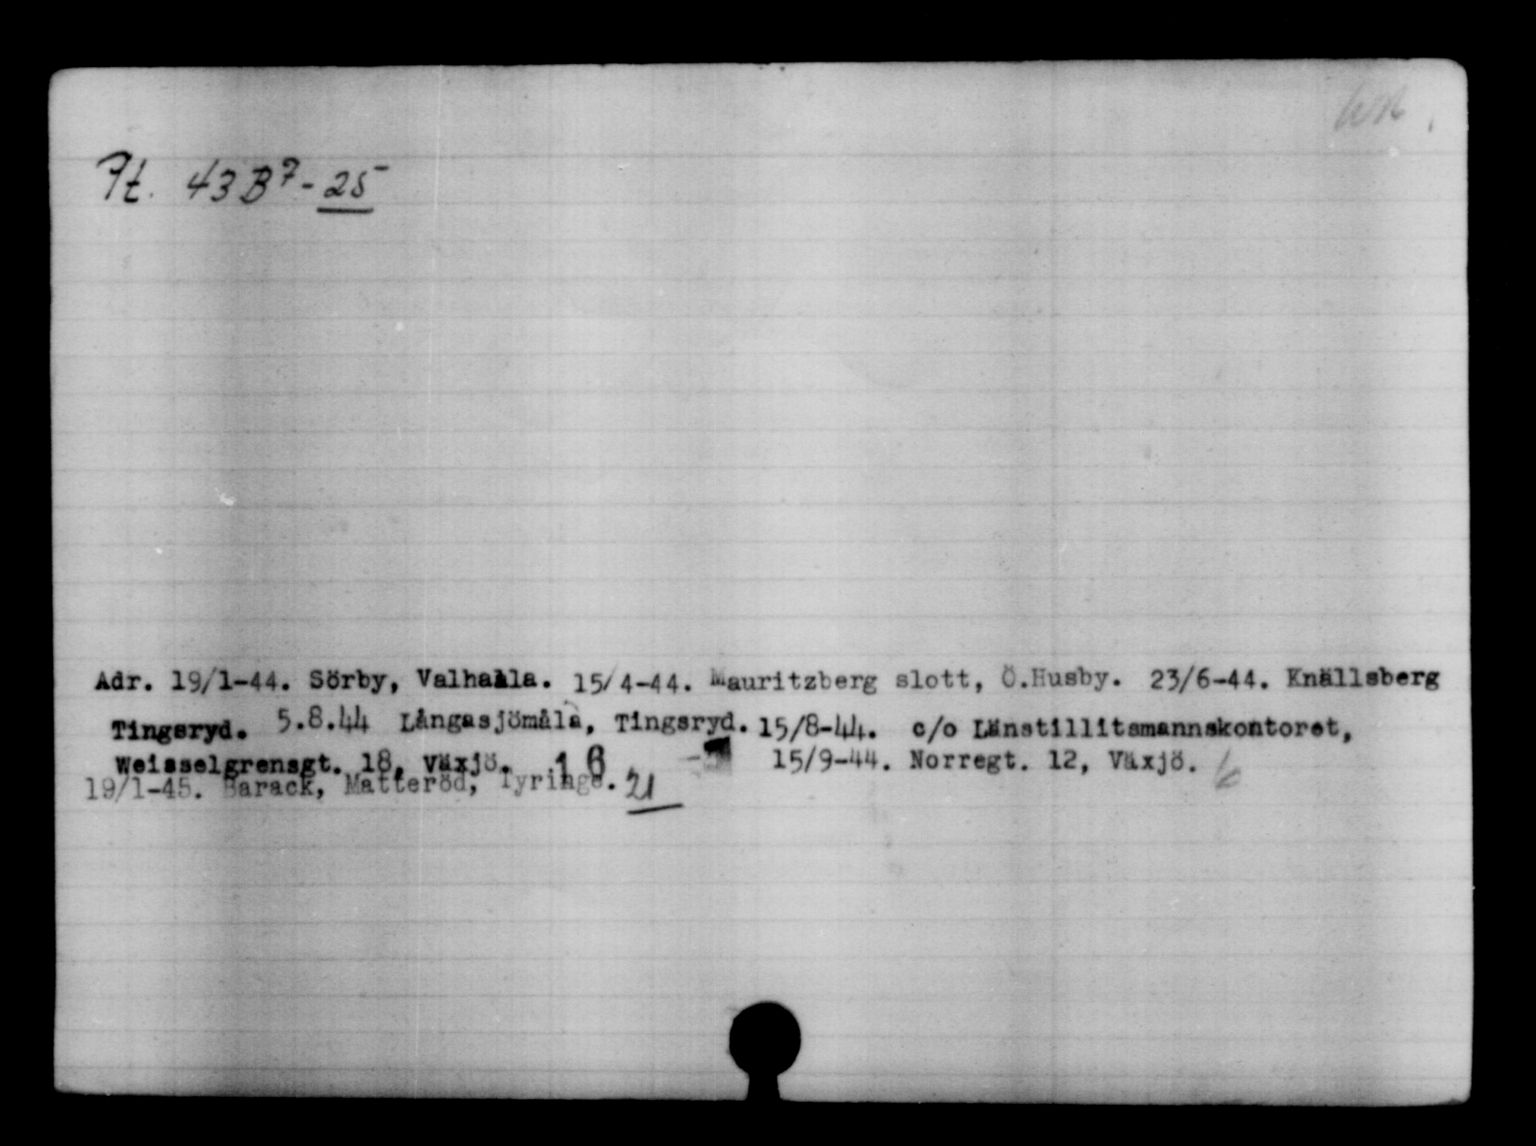 Pt. 43 B7 - 25
Adr. 19/1-44. Sörby, Valhalla. 15/4-44. Mauritzberg slott, Ö.Husby. 23/6-44. Knällsberg
Tingsryd. 5.8.44 Långasjömåla, Tingsryd. 15/8-44. c/o Länstillitsmannskontoret,
Weisselgrensgt. 18, Växjö. 16 15/9-44. Norregt. 12, Växjö.
19/1-45. Barack, Matteröd, Tyringe. 21